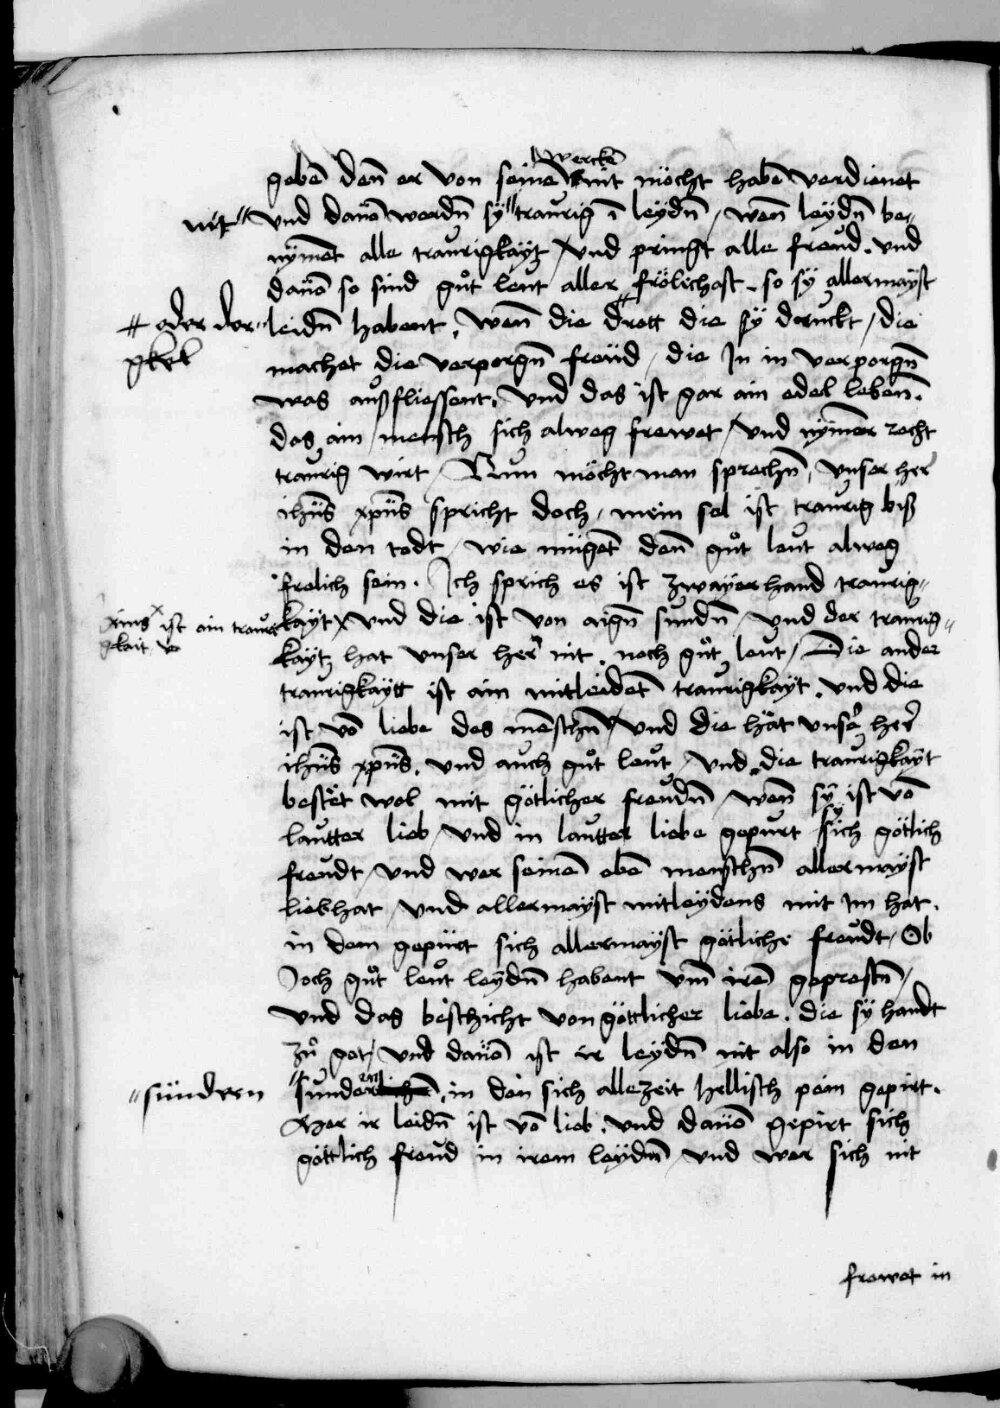 wercken
gebē den̄ er von seinē nit möcht habē verdienet
nit
vnd dauō werdn̄ sy traurig ī leydn̄ / wen̄ leydn̄ be-
nymēt alle traurigkaytz / vnd pringt alle freud . vnd
dauō so sind gůt leut aller frölichost . so sy allermayst
# oder der
leidn̄ habent , wen̄ die drott die sy druckt / die
machet die verporgn̄ freud / die Jn in verporgn̄
was außfliessent , vnd das ist gar ain edel leben .
das ain mensch sich alweg frewet / vnd nymer recht
traurig wirt / Nun möcht man sprechn̄ , vnser her
ihūs xpūs spricht doch , mein sel ist traurig biß
in den todt / wie mügēt den̄ gůt leut alweg
frolich sein . Jch sprich es ist zwayerhand traurig-
ains ist ain traur
gkait
kayt x vnd die ist von aign̄ sundn̄ / vnd der traurig-
kaytz hat vnser her nit , noch gůt leut / Die ander
traurigkaytt ist ain mitleidēt traurigkayt . vnd die
ist vō liebe des mēschn̄ / vnd die hat vnser her
ihūs xpūs , vnd auch gůt leut / vnd die traurigkayt
bestet wol mit götlicher freudn̄ / wen̄ sy ist vō
lautter lieb / vnd in lautter liebe gepurt sich götlich
freudt / vnd wer seinē ebē menschn̄ allermayst
liebhat / vnd allermayst mitleydens mit Im hat .
in dem gepürt sich allermayst götliche freudt / Ob
Joch gůt leut leydn̄ habent vm̄ irē geprestn̄ /
vnd das beschicht von göttlicher liebe . die sy handt
zů got / vnd dauō ist ir leydn̄ nit also in den
sündern
sunder in den sich allezeit hellisch pein gepirt .
Aber ir leidn̄ ist vō lieb . vnd dauō gepirt sich
göttlich freud in irem leydn̄ / vnd wer sich nit
frewet in